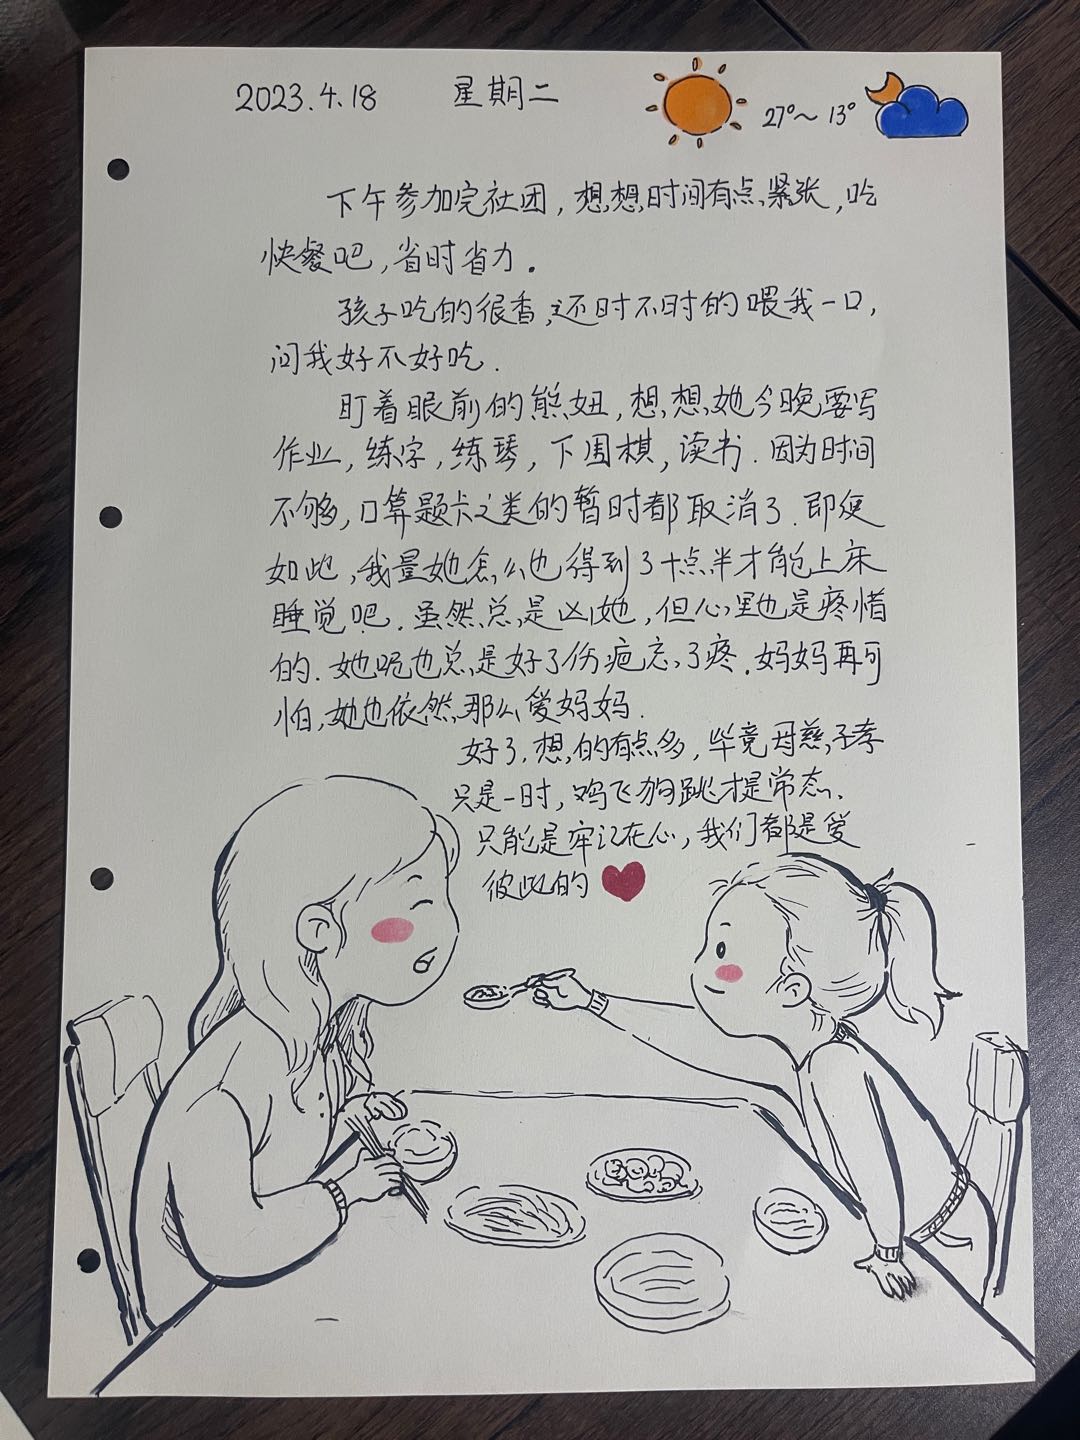 2023.4.18 星期二 27°~13°
下午参加完社团,想想时间有点紧张,吃
快餐吧,省时省力.
孩子吃的很香,还时不时的喂我一口,
问我好不好吃.
盯着眼前的熊妞,想想她今晚要写
作业,练字,练琴,下围棋,读书.因为时间
不够,口算题卡之类的暂时都取消了.即便
如此,我量她怎么也得到了十点半才能上床
睡觉吧.虽然总是凶她,但心里也是疼惜
的.她呢也总是好了伤疤忘了疼.妈妈再可
怕,她也依然那么爱妈妈.
好了,想的有点多,毕竟母慈子孝
只是一时,鸡飞狗跳才是常态.
只能是牢记在心,我们都是爱
彼此的